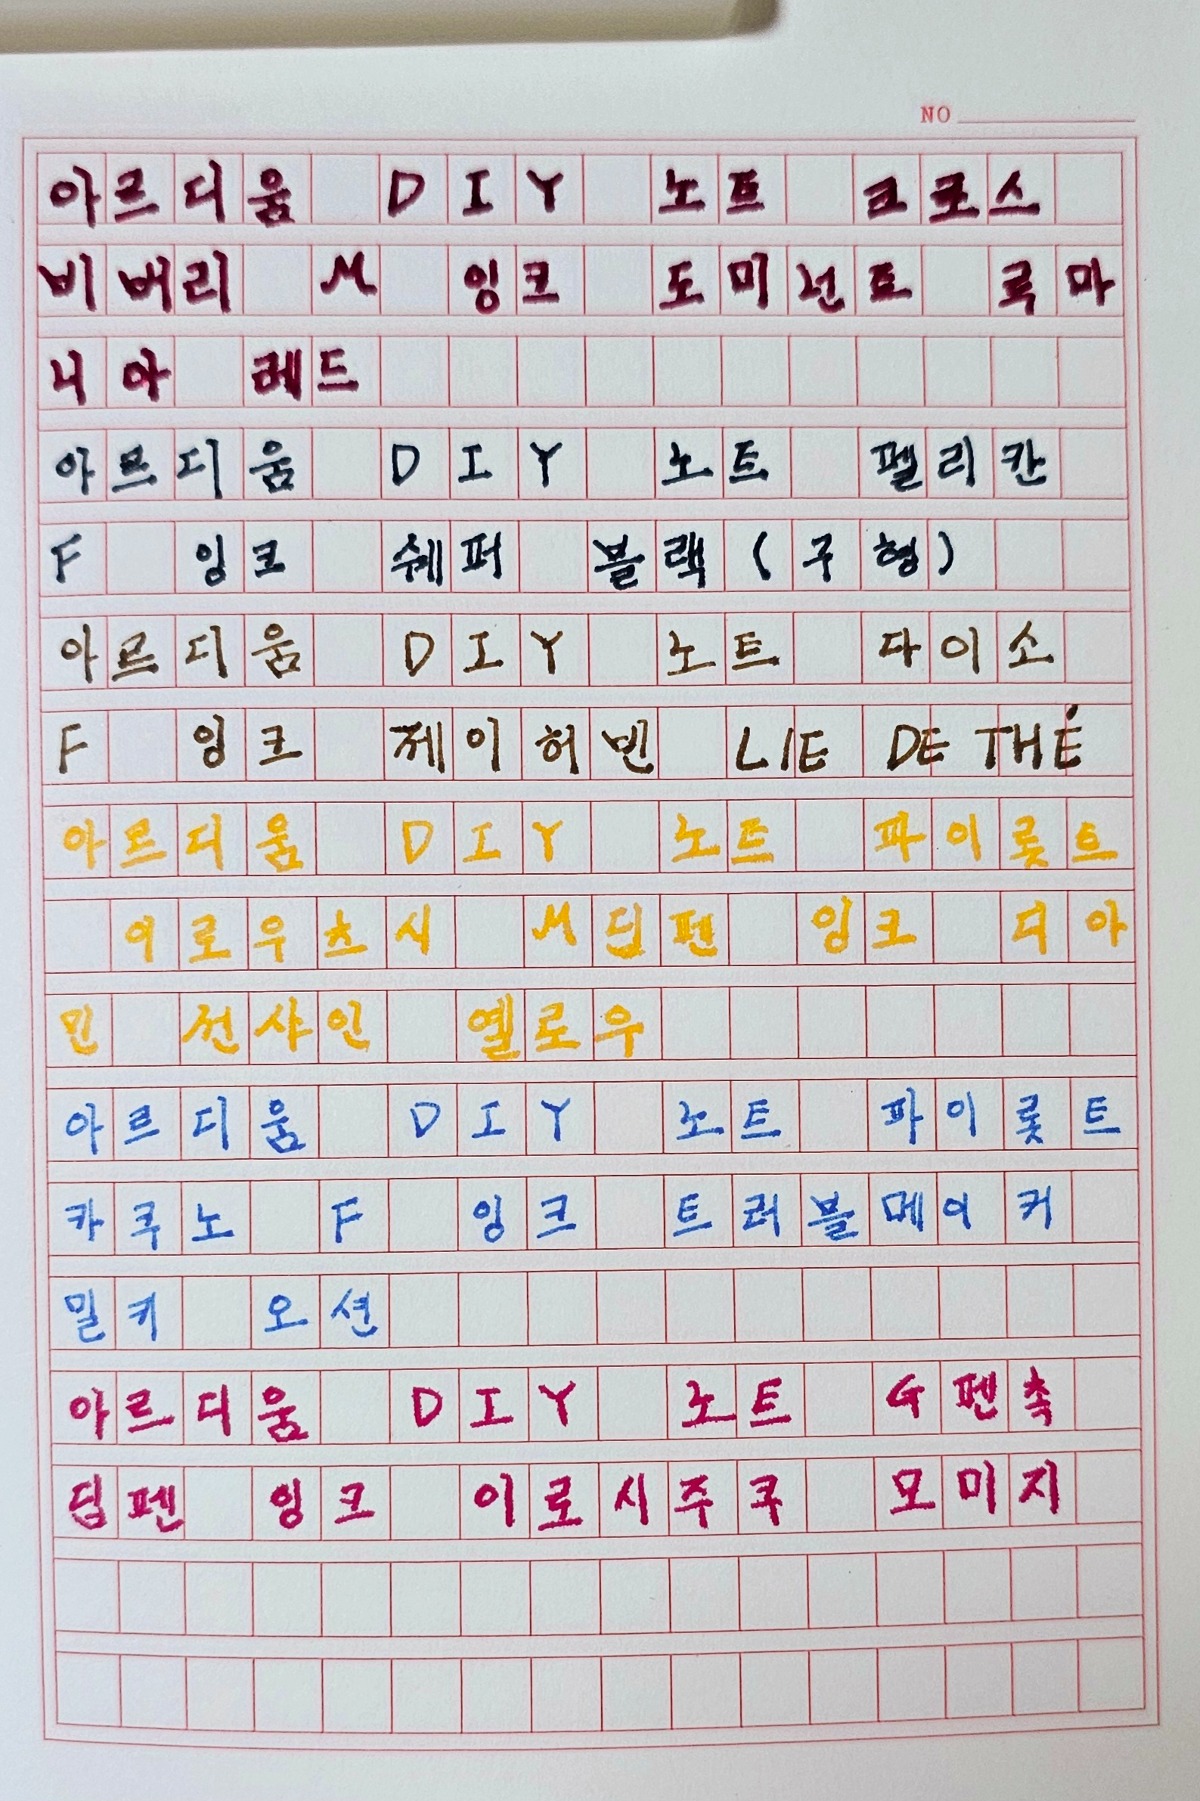 NO
아르디움 DIY 노트 크로스
비버리 M 잉크 도미넌트 루마
니아 레드
아르디움 DIY 노트 펠리칸
F 잉크 쉐퍼 블랙(구형)
아르디움 DIY 노트 다이소
F 잉크 제이허빈 LIE DE THÉ
아르디움 DIY 노트 파이롯트
이로우츠시 M딥펜 잉크 디아
민 선샤인 옐로우
아르디움 DIY 노트 파이롯트
카쿠노 F 잉크 트러블메이커
밀키 오션
아르디움 DIY 노트 G펜촉
딥펜 잉크 이로시주쿠 모미지